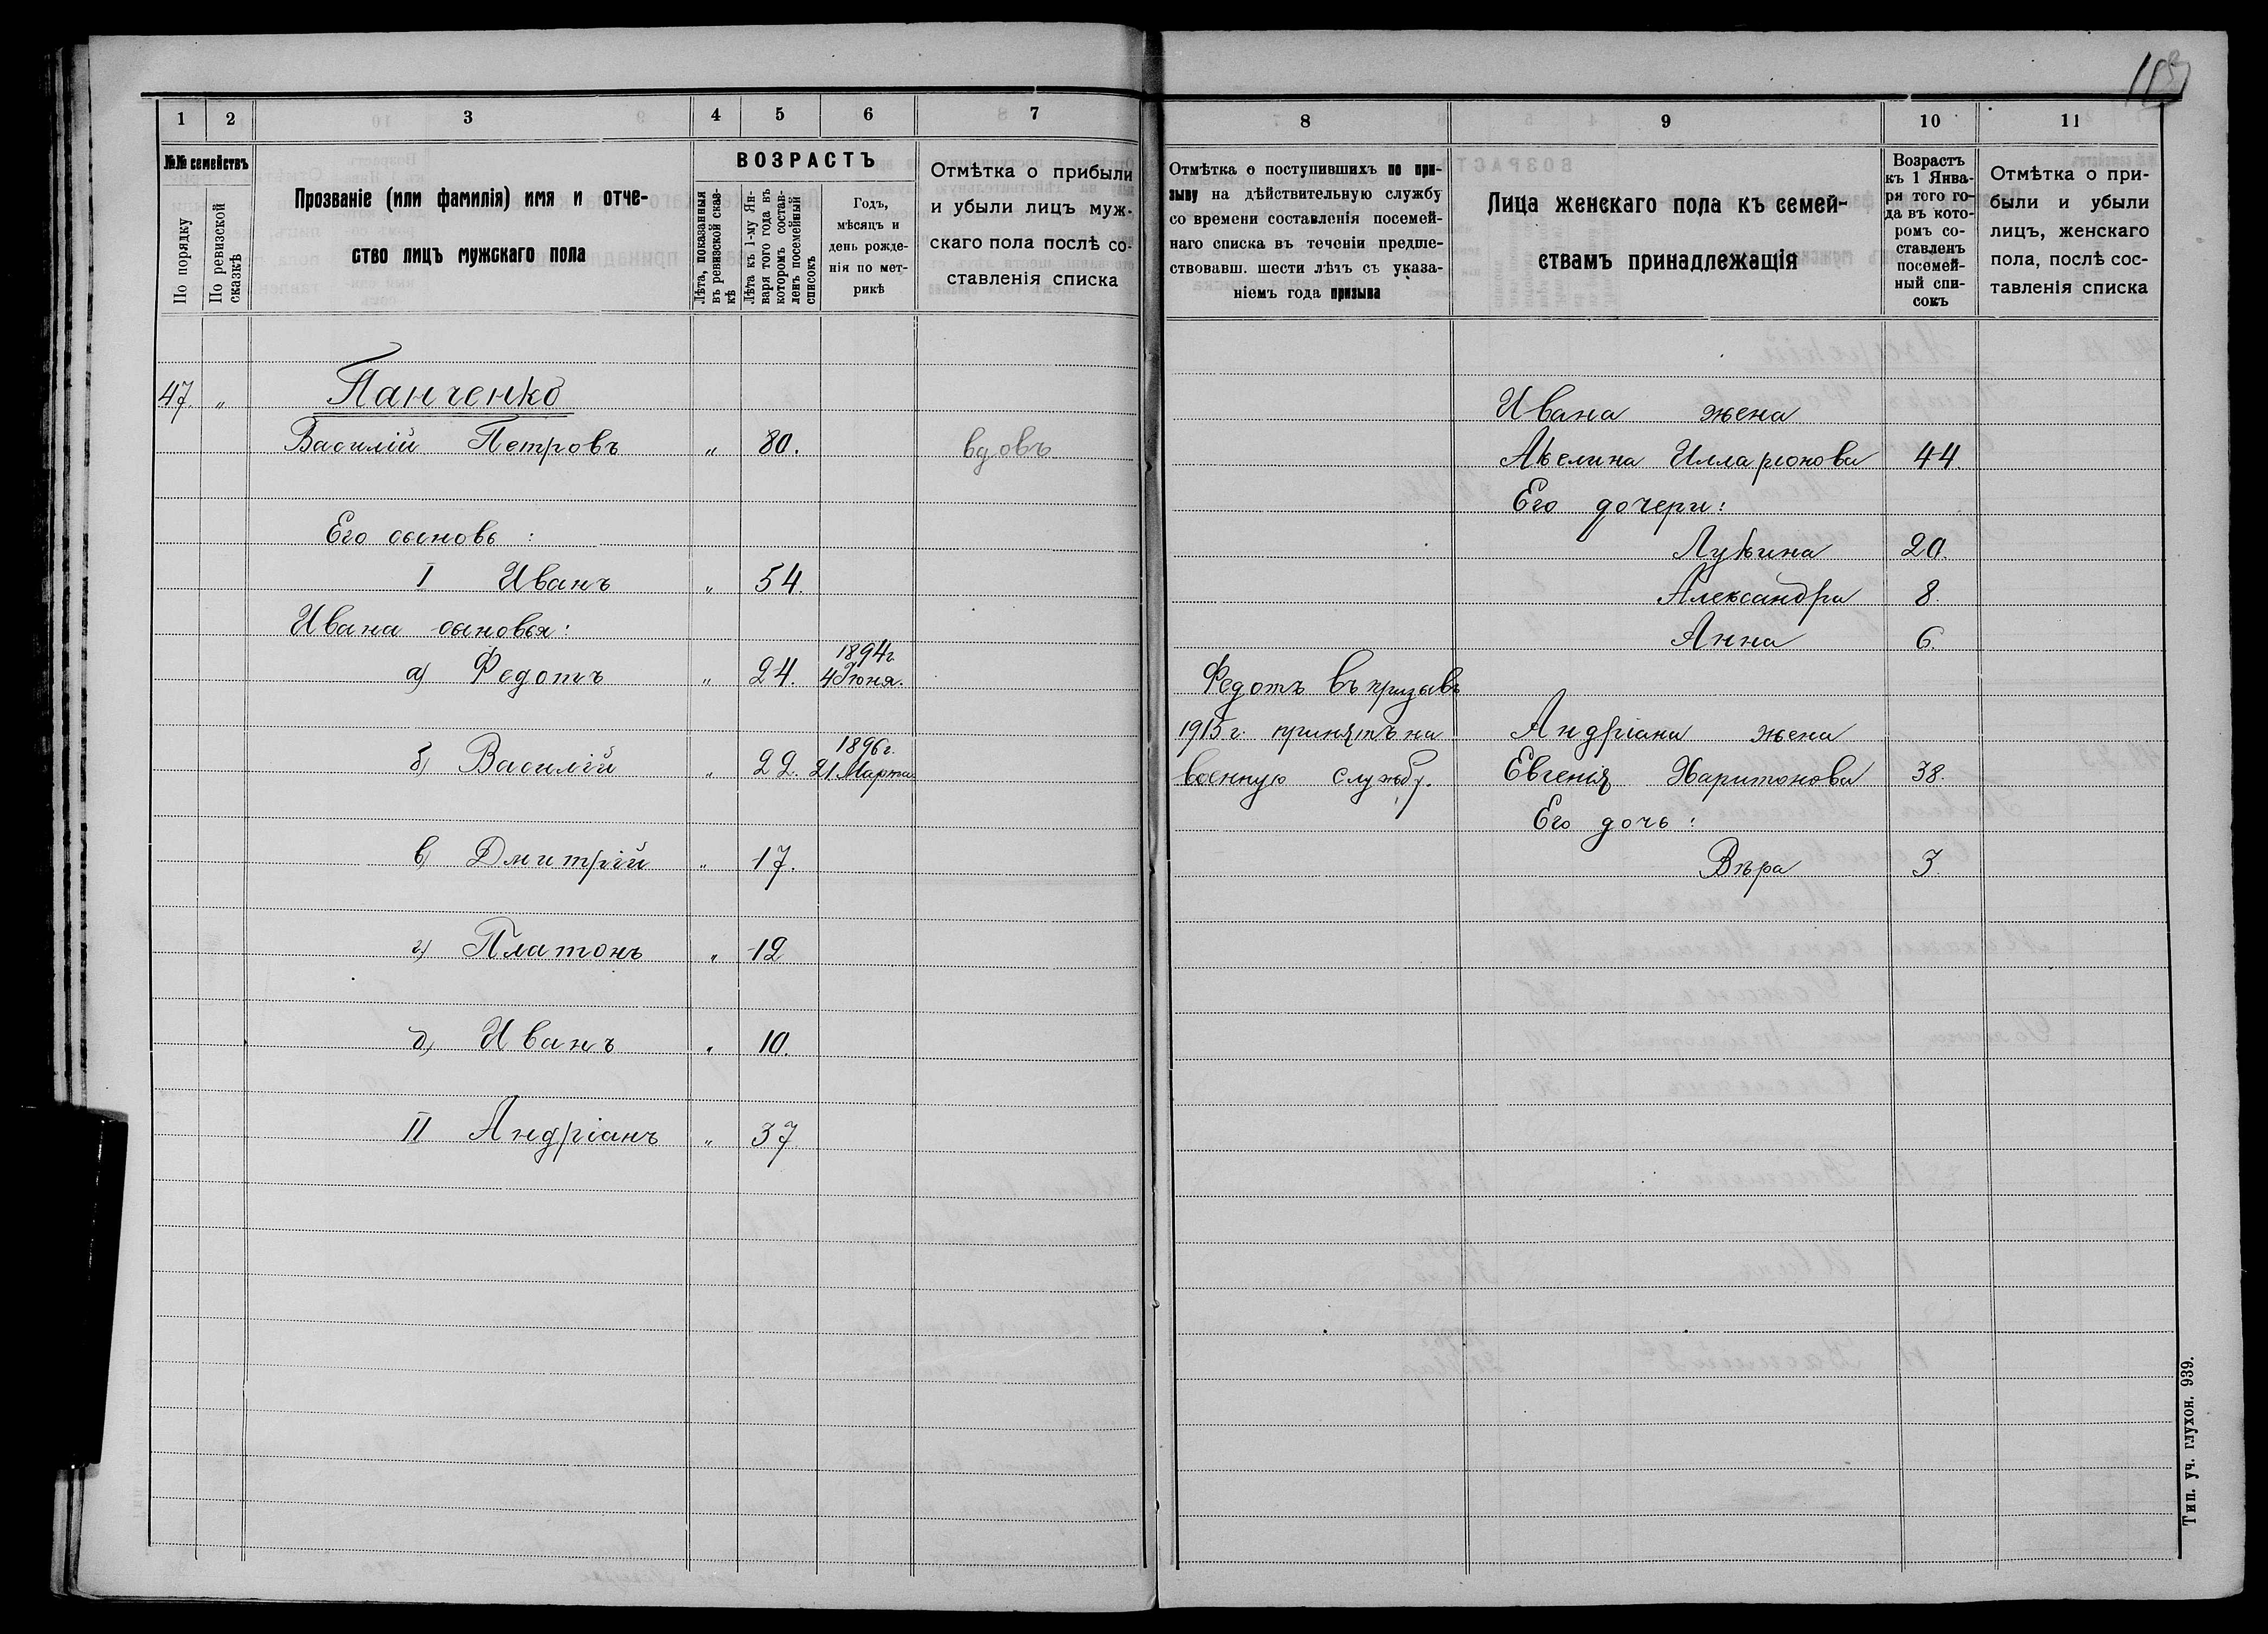 1 2 3 4 5 6 7
№№ семействъ
По порядку
По ревизской
сказкѣ
Прозваніе (или фамилія) имя и отче-
ство лицъ мужскаго пола
ВОЗРАСТЪ
Лѣта, показанныя
въ ревизской сказ-
кѣ
Лѣта къ 1-му Ян-
варя того года въ
которомъ состав-
ленъ посемейный
списокъ
Годъ,
мѣсяцъ и
день рожде-
нія по мет-
рикѣ
Отмѣтка о прибыли
и убыли лицъ муж-
скаго пола послѣ со-
ставленія списка
47. „ Панченко
Василій Петровъ „ 80. вдовъ
Его сыновь :
I Иванъ „ 54.
Ивана сыновья:
1894г.
а) Федотъ „ 24. 4 Июня.
1896г.
б) Василій „ 22. 21 Марта
в) Дмитрій „ 17.
г) Платонъ „ 12
д) Иванъ „ 10.
II Андріанъ „ 37
8 9 10 11
Отмѣтка о поступившихъ по при-
зыву на дѣйствительную службу
со времени составленія посемей-
наго списка въ теченіи предше-
ствовавш. шести лѣтъ съ указа-
ніемъ года призыва
Лица женскаго пола къ семей-
ствамъ принадлежащія
Возрастъ
къ 1 Янва-
ря того го-
да въ кото-
ромъ со-
ставленъ
посемей-
ный спи-
сокъ
Отмѣтка о при-
были и убыли
лицъ, женскаго
пола, послѣ сос-
тавленія списка
Ивана жена
Акелина Илларіонова 44.
Его дочери:
Лукина 20.
Александра 8.
Анна 6.
Федотъ въ призывъ
1915 г. принятъ на Андріана жена
военную службу. Евгенія Харитонова 38.
Его дочь :
Вѣра 3.
Тип. уч. глухон. 939.